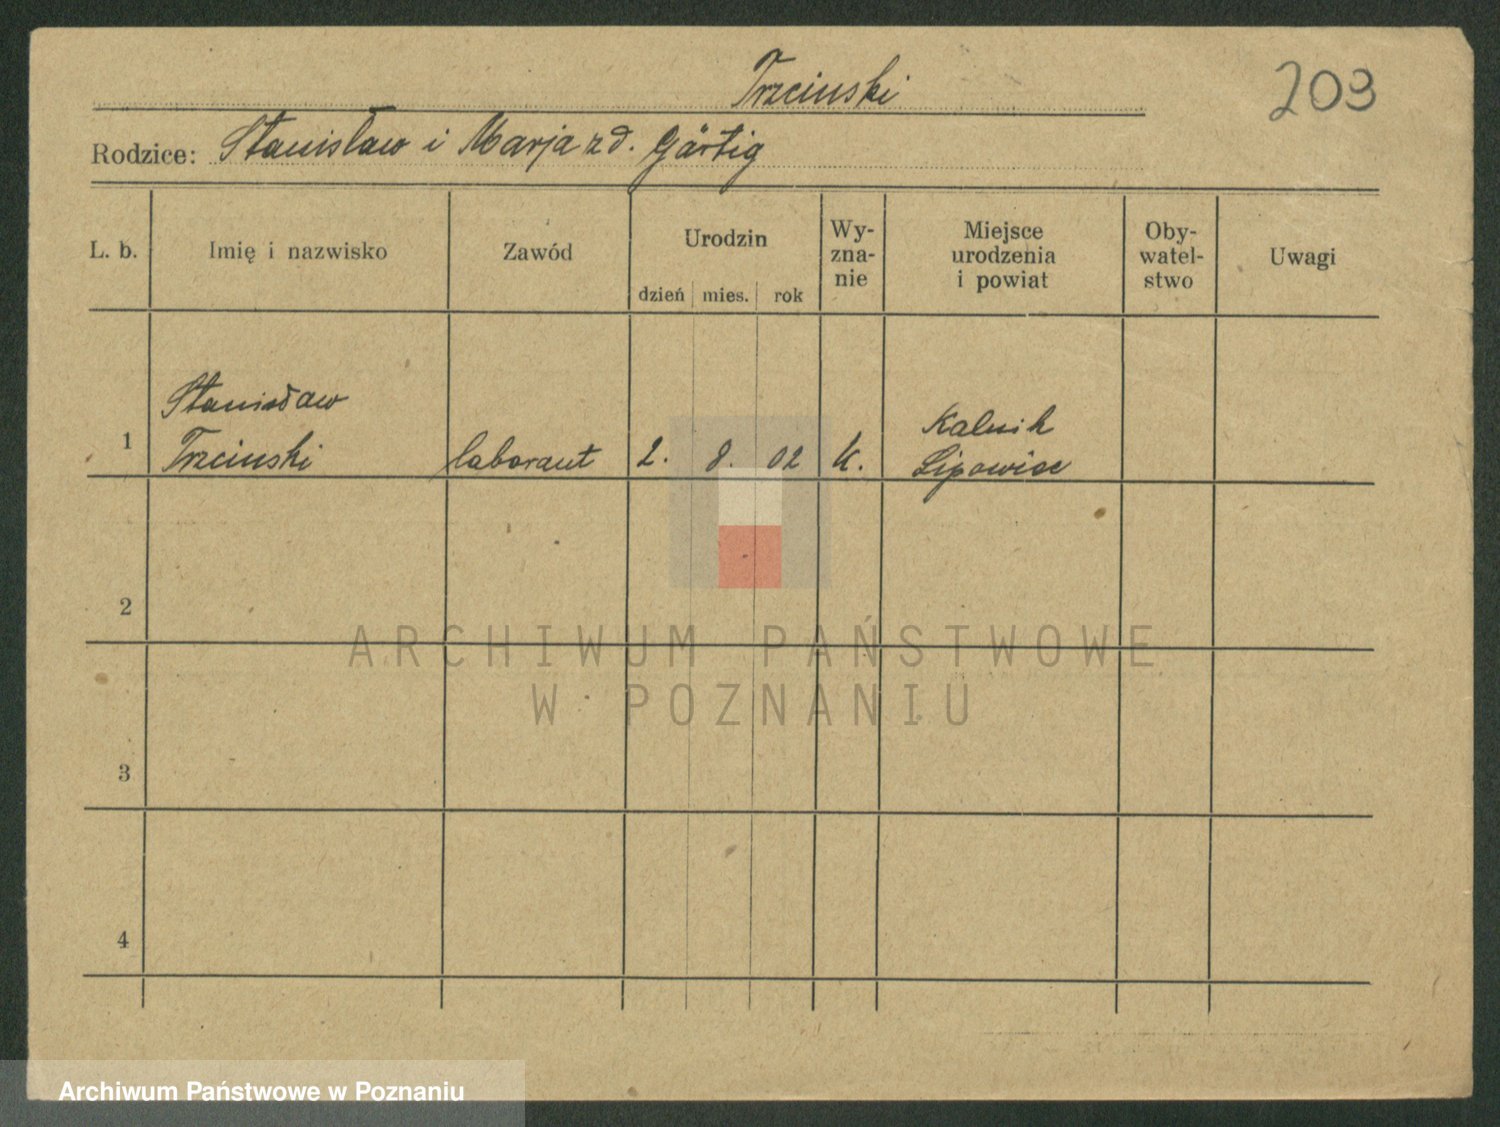 Trzcinski
203
Rodzice: Stanisław i Marja z d. Gärtig
L. b.
Imię i nazwisko
Zawód
Urodzin
dzień mies. rok
Wy-
zna-
nie
Miejsce
urodzenia
i powiat
Oby-
watel-
stwo
Uwagi
Stanisław
Kalnik
1 Trzcinski laborant 2. 8. 02 k. Lipowiec
2
3
4
ARCHIWUM PAŃSTWOWE
W POZNANIU
Archiwum Państwowe w Poznaniu